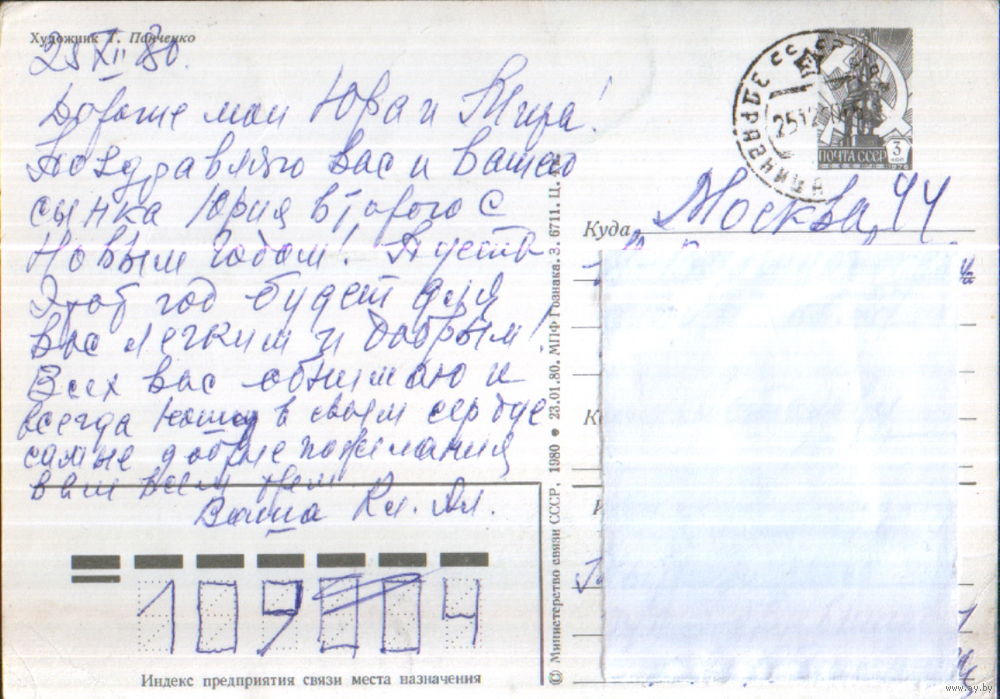 Художник Т. Панченко
25 XII 80.
Дорогие мои Юра и Мира!
Поздравляю Вас и Вашего
сынка Юрия второго с
Новым годом! Пусть
этот год будет для
Вас легким и добрым!
Всех вас обнимаю и
всегда ношу в своем сердце
самые добрые пожелания
вам всем трем
Ваша Кл. Ал.
Индекс предприятия связи места назначения
© Министерство связи СССР. 1980 • 23.01.80. МПФ Гознака. З. 6711. Ц. 4к.
ПОЧТА СССР
3
КОП
1976
Куда Москва, 44
www.ay.by